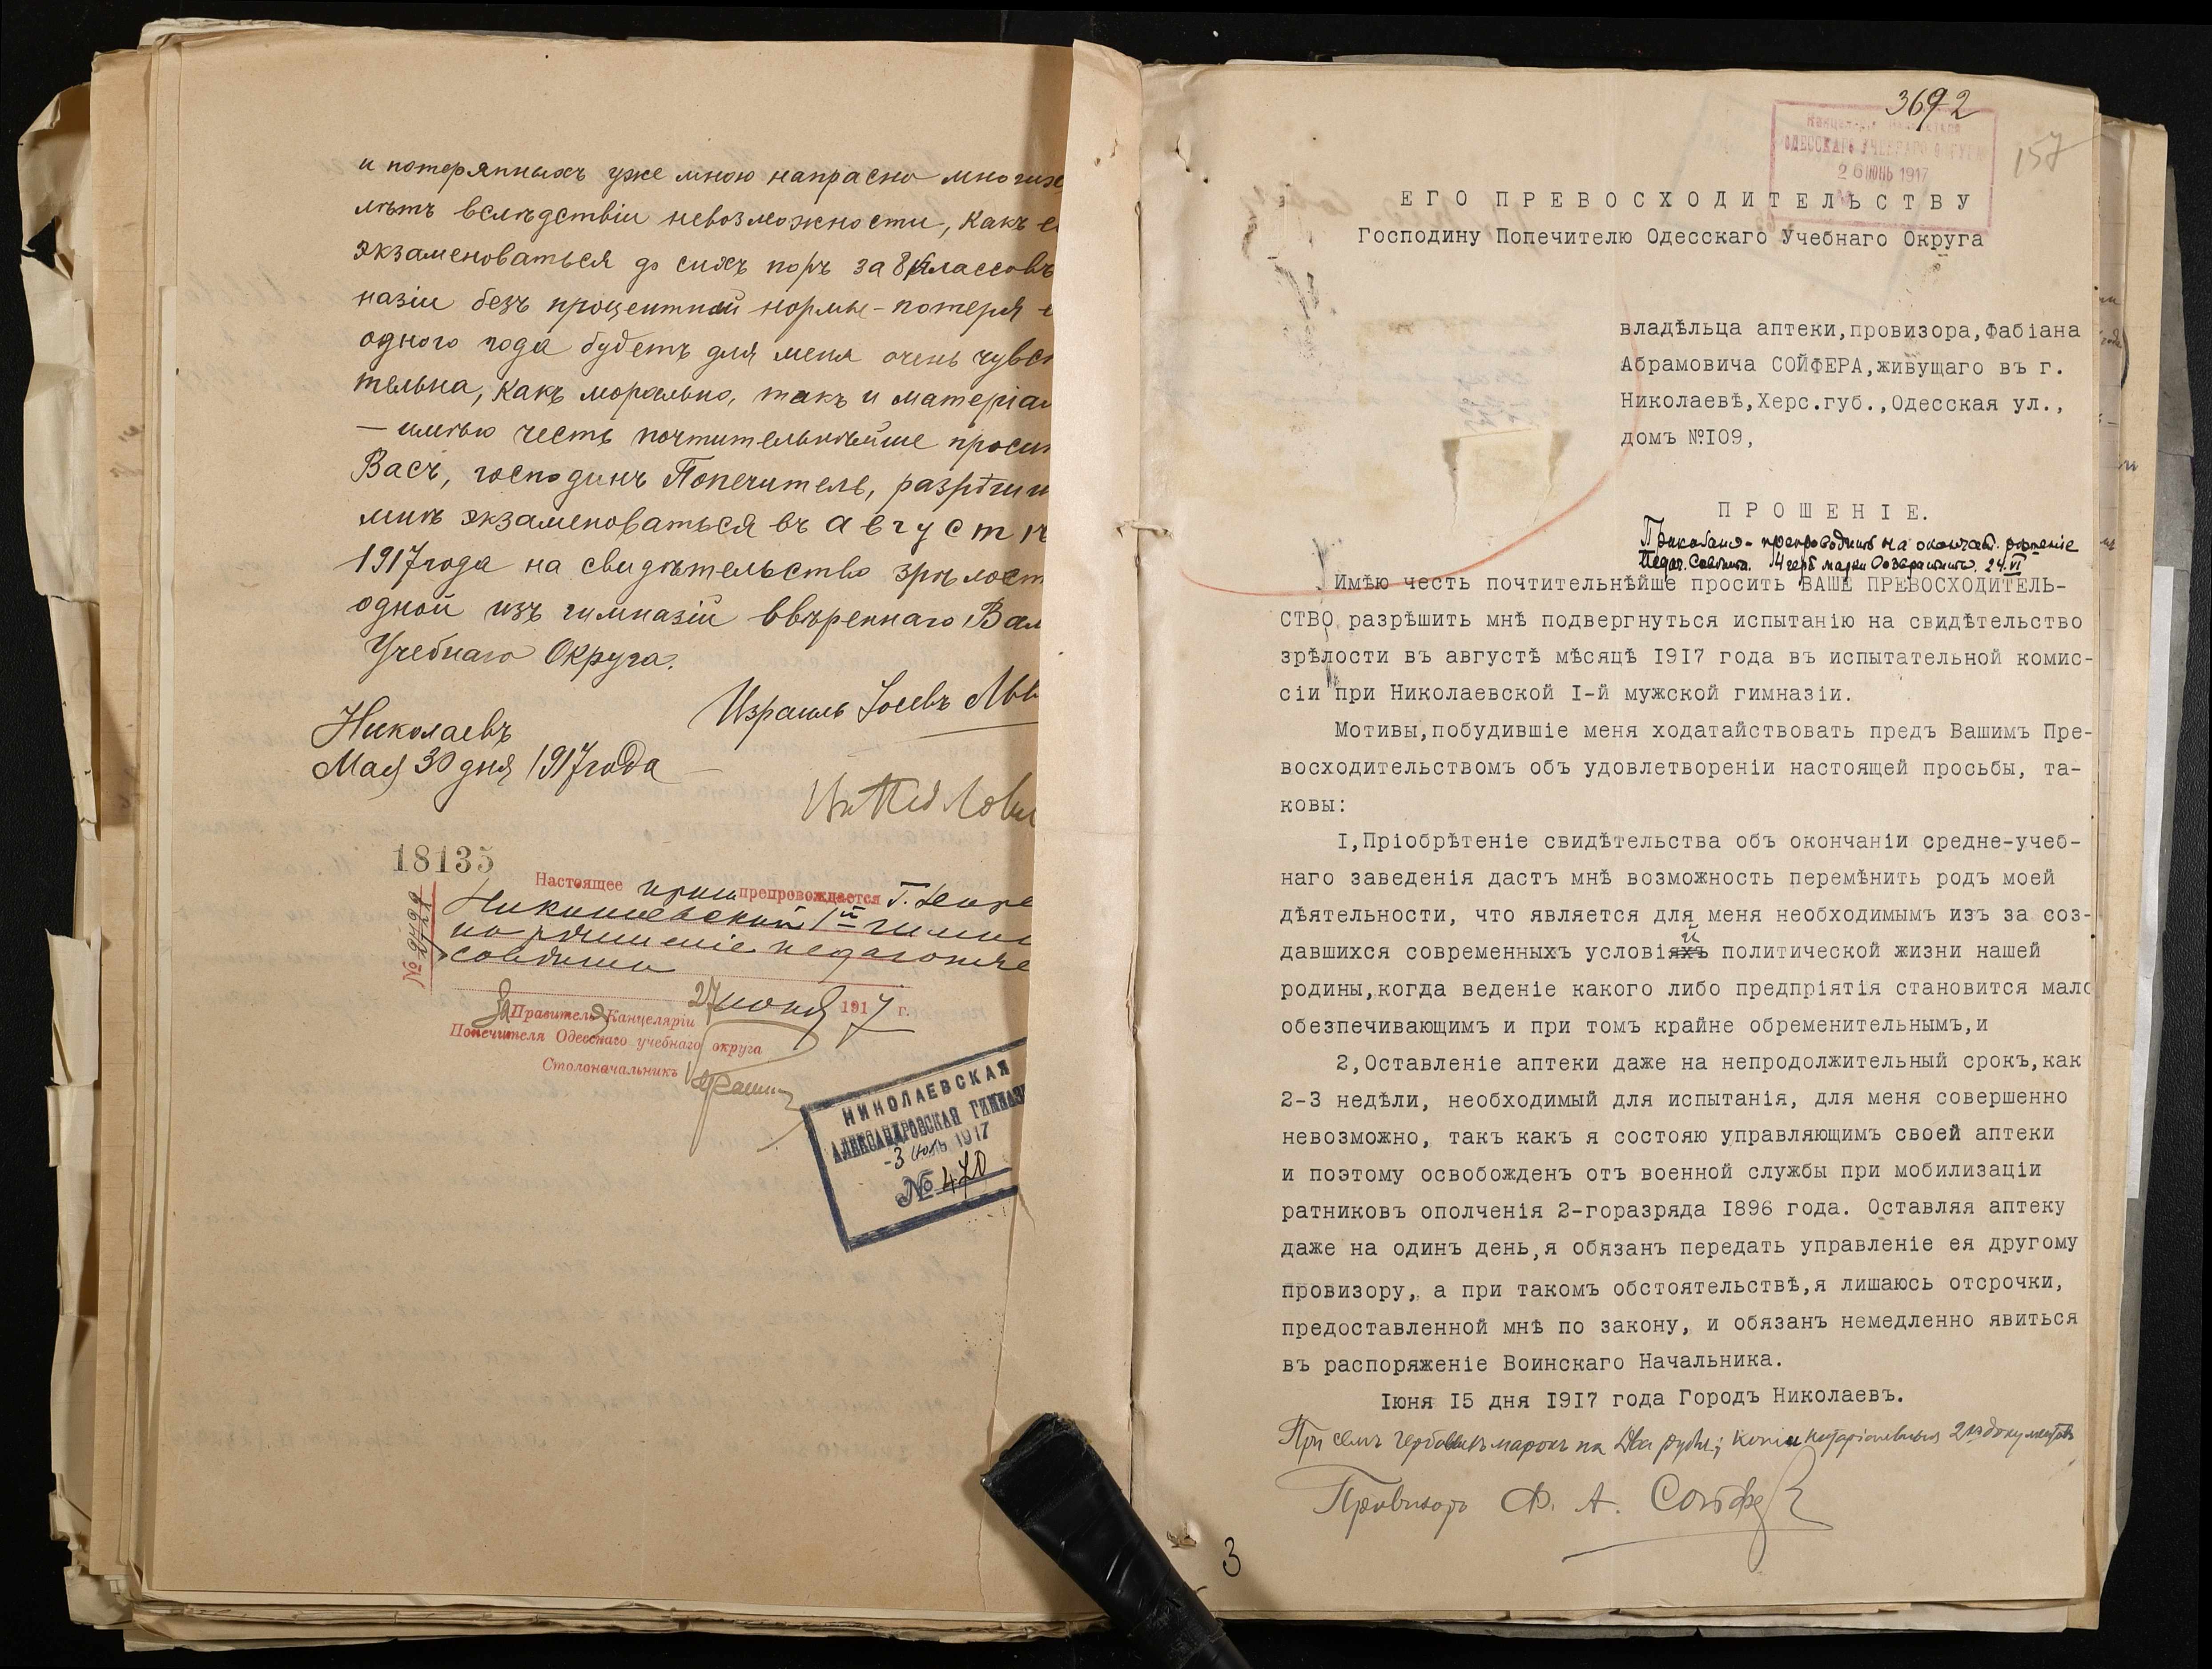 и потерянныхъ уже мною напрасно многихъ
лѣтъ вслѣдствіи невозможности, какъ е
экзаменоваться до сихъ поръ за 8 классовъ
назіи безъ процентной нормы - потеря е
одного года будетъ для меня очень чувст
тельна, какъ морально, такъ и матеріал
— имѣю честь почтительнѣйше просит
Васъ, господинъ Попечитель, разрѣшит
мнѣ экзаменоваться въ августѣ
1917 года на свидѣтельство зрѣлост
одной изъ гимназіи ввѣреннаго Вам
Учебнаго Округа.
Израиль
Николаевъ
Мая 30 дня 1917 года
18135
Настоящее препровождается Г.
Николаевской 1й гимн
на рѣшеніе педагогиче
совѣта
№
27 іюня 1917 г.
За Правителя Канцеляріи
Попечителя Одесскаго учебнаго округа
Столоначальникъ
НИКОЛАЕВСКАЯ
АЛЕКСАНДРОВСКАЯ ГИМНАЗ
-3 июль 1917
№ 470
3692
157
ОДЕССКАГО УЧЕБНАГО ОКРУГА
26 ІЮНЬ 1917
ЕГО ПРЕВОСХОДИТЕЛЬСТВУ
Господину Попечителю Одесскаго Учебнаго Округа
владѣльца аптеки,провизора,Фабіана
Абрамовича СОЙФЕРА,живущаго въ г.
Николаевѣ,Херс.губ.,Одесская ул.,
домъ №I09,
ПРОШЕНІЕ.
препроводить на окончат. рѣшеніе
Педаг. Совѣта. 4 герб марки Возвратить. 24.VI
Имѣю честь почтительнѣйше просить ВАШЕ ПРЕВОСХОДИТЕЛЬ-
СТВО разрѣшить мнѣ подвергнуться испытанію на свидѣтельство
зрѣлости въ августѣ мѣсяцѣ I9I7 года въ испытательной комис-
сіи при Николаевской I-й мужской гимназіи.
Мотивы,побудившіе меня ходатайствовать предъ Вашимъ Пре-
восходительствомъ объ удовлетвореніи настоящей просьбы, та-
ковы:
I,Пріобрѣтеніе свидѣтельства объ окончаніи средне-учеб-
наго заведенія дастъ мнѣ возможность перемѣнить родъ моей
дѣятельности, что является для меня необходимымъ изъ за соз-
давшихся современныхъ условіяхъ й политической жизни нашей
родины,когда веденіе какого либо предпріятія становится мало
обезпечивающимъ и при томъ крайне обременительнымъ,и
2,Оставленіе аптеки даже на непродолжительный срокъ,как
2-3 недѣли, необходимый для испытанія, для меня совершенно
невозможно, такъ какъ я состою управляющимъ своей аптеки
и поэтому освобожденъ отъ военной службы при мобилизаціи
ратниковъ ополченія 2-горазряда I896 года. Оставляя аптеку
даже на одинъ день,я обязанъ передать управленіе ея другому
провизору, а при такомъ обстоятельствѣ,я лишаюсь отсрочки,
предоставленной мнѣ по закону, и обязанъ немедленно явиться
въ распоряженіе Воинскаго Начальника.
Іюня I5 дня I9I7 года Городъ Николаевъ.
При семъ гербовыхъ марокъ на два рубля; копіи нотаріальныя 2хъ документовъ
Провизоръ Ф. А. Сойфер
3